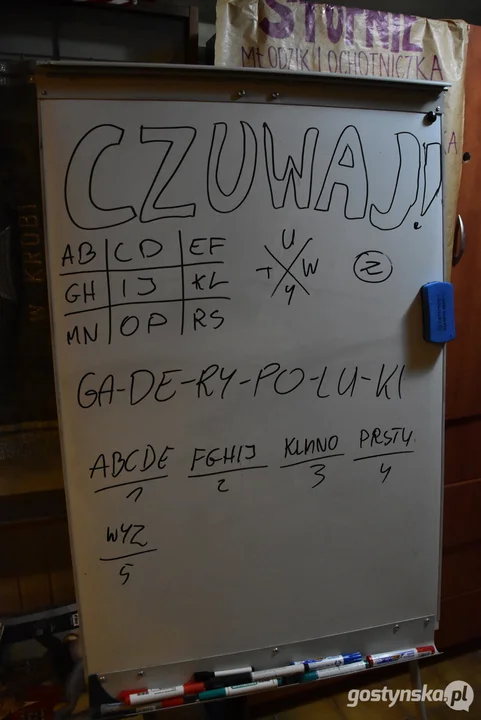 STOPNIE
MŁODZIK I OCHOTNICZKA
CZUWAJ!
AB CD EF
GH IJ KL
MN OP RS
U
T W
Y
Z
GA-DE-RY-PO-LU-KI
ABCDE FGHIJ KLMNO PRSTU
1 2 3 4
WYZ
5
gostynska.pl